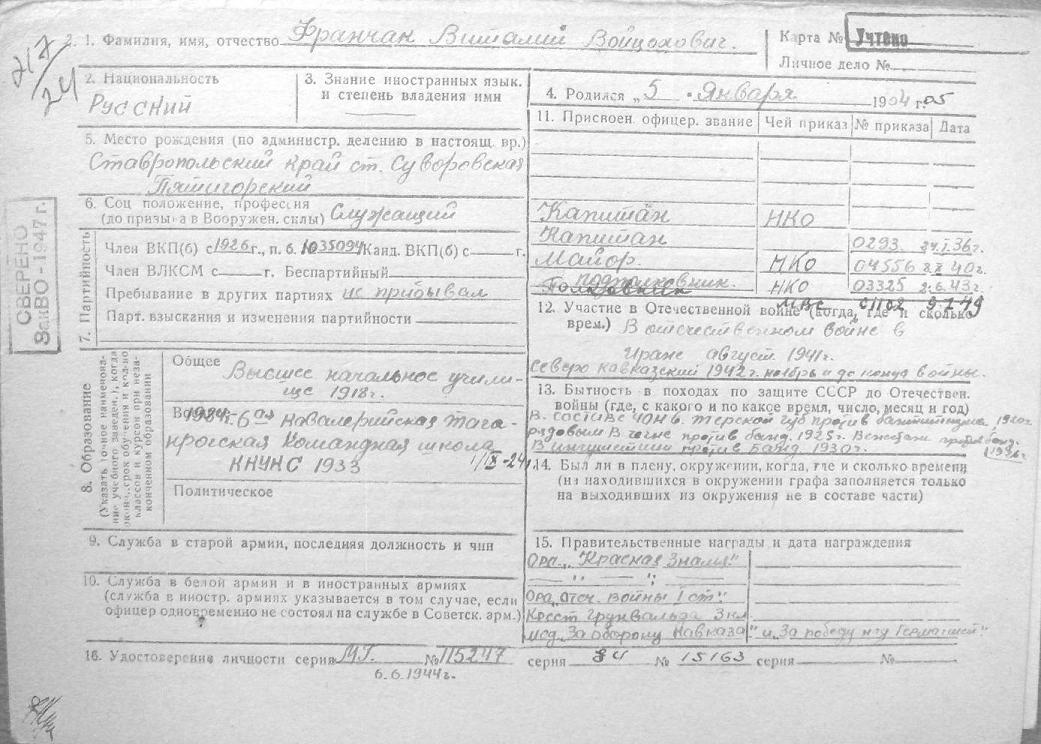 217
24
2. 1. Фамилия, имя, отчество Франчак Виталий Войцехович.
Карта № Учтено
Личное дело №
2. Национальность
Русский
3. Знание иностранных язык.
и степень владения ими
4. Родился „5 " Января 1904 г. 05
5. Место рождения (по администр. делению в настоящ. вр.)
Ставропольский край ст. Суворовская
Пятигорский
6. Соц положение, профессия
(до призыва в Вооружен. силы) Служащий
СВЕРЕНО
ЗакВО - 1947 г.
7. Партийность
Член ВКП(б) с 1926 г., п. б. 1035094 Канд. ВКП(б) с г.
Член ВЛКСМ с г. Беспартийный
Пребывание в других партиях не прибывал
Парт. взыскания и изменения партийности
8. Образование
(Указать точное наименование учебного заведения, когда окон., срок обучения и кол-во классов и курсов при незаконченном образовании
Общее Высшее начальное учили-
ще 1918 г.
Кавалерийская Тага-
нрогская Командная школа
КНУНС 1933
Политическое
9. Служба в старой армии, последняя должность и чин
10. Служба в белой армии и в иностранных армиях
(служба в иностр. армиях указывается в том случае, если
офицер одновременно не состоял на службе в Советск. арм.)
11. Присвоен. офицер. звание Чей приказ № приказа Дата
Капитан НКО
Капитан 0293 36г.
Майор. НКО 04556 40г.
подполковник. НКО 03325 2.6.43 г.
Полковник МВС 01102 49
12. Участие в Отечественной войне (когда, где и сколько
врем.) В отечественной войне в
Иране август 1941г.
Северо Кавказский 1942 г. ноябрь и до конца войны.
13. Бытность в походах по защите СССР до Отечествен.
войны (где, с какого и по какое время, число, месяц и год)
В составе ЧОН б. Терской губ против бандитизма 1920г.
рядовым В Чечне против банд. 1925 г.
В ингушетии против банд 1930 г.
14. Был ли в плену, окружении, когда, где и сколько времени
(на находившихся в окружении графа заполняется только
на выходивших из окружения не в составе части)
15. Правительственные награды и дата награждения
Орд. „Красная Знамя"
— " — " —
Орд „Отеч. войны I ст"
Крест Грунвальда
мед „За оборону Кавказа" и „За победу н/у Германией"
16. Удостоверение личности серия МГ. № 115247 серия 34 № 15163 серия №
6.6.1944 г.